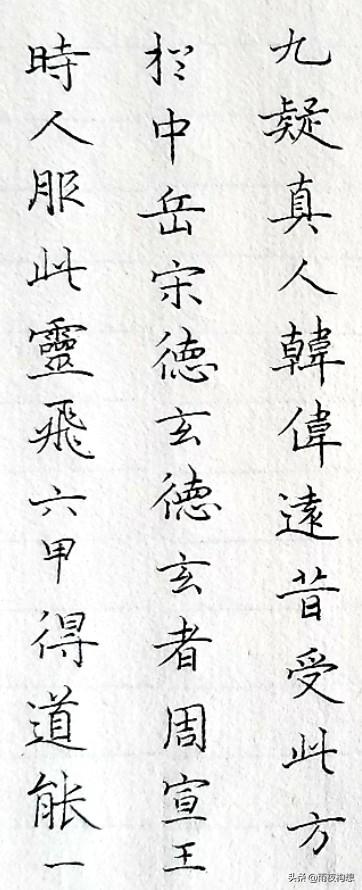 九疑真人韓偉遠昔受此方
於中岳宋德玄德玄者周宣王
時人服此靈飛六甲得道能一
头条 @雨夜沟想